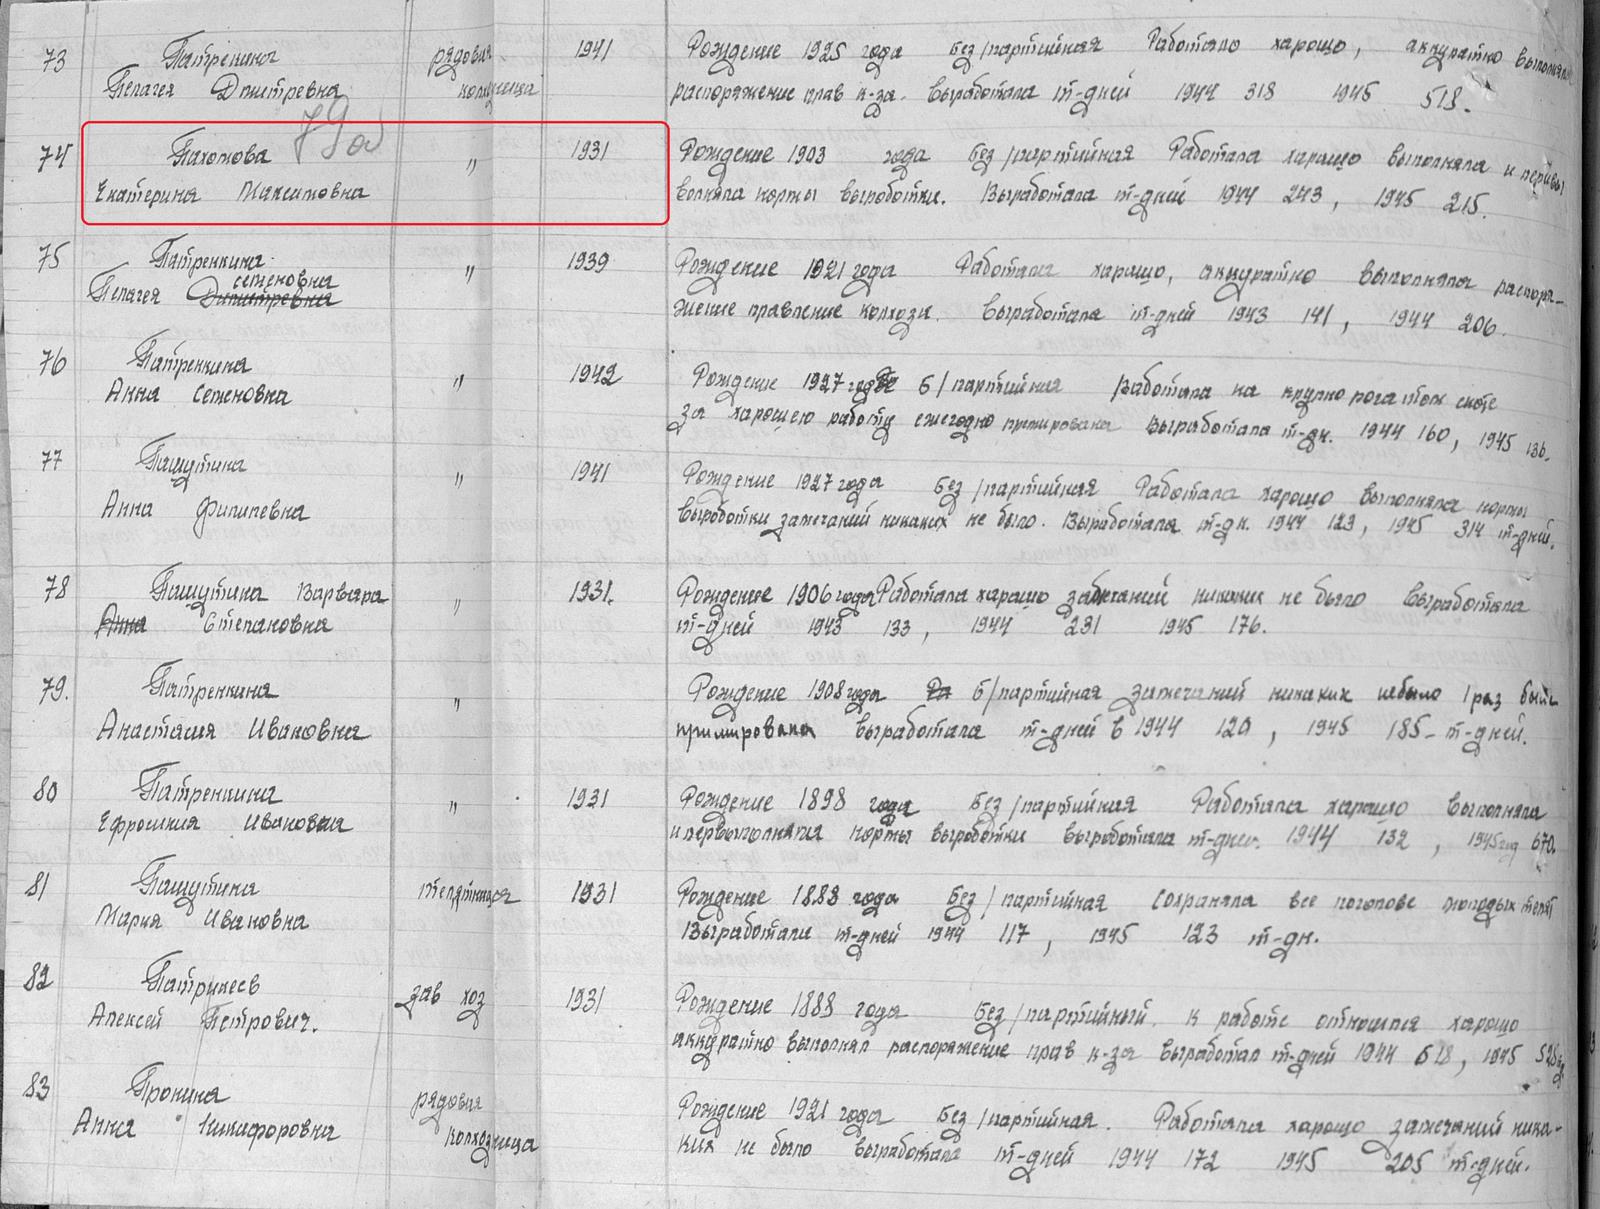 73 Патренкина рядовая 1941 Рождение 1925 года без/партийная Работало харошо, аккуратно выполняла
Пелагея Дмитревна колхозница распоряжение прав к-за. Выработала т-дней 1944 318 1945 518.
74 Пахомова " 1931 Рождение 1903 года без/партийная Работала харашо выполняла и перевы
Екатерина Максимовна волняла нормы выработки. Выработала т-дней 1944 243, 1945 215.
75 Патренкина " 1939 Рождение 1921 года Работала харашо, аккуратно выполняла распоря-
семеновна
Пелагея Дмитревна жение правление колхоза. Выработала т-дней 1943 141, 1944 206.
76 Патренкина " 1942 Рождение 1927 года б/партийная Работала на крупно рогатом скоте
Анна Семеновна за харошею работу ежегодно премирована Выработала т-дн. 1944 160, 1945 136.
77 Пашутина " 1941 Рождение 1927 года без/партийная Работала харошо выполняла нормы
Анна Филиповна выроботки замечаний никаких не было. Выработала т-дн. 1944 123, 1945 314 т-дней.
78 Пашутина Варвара " 1931. Рождение 1906 года Работала харашо замечаний никаких не было Выработала
Анна Степановна т-дней 1943 133, 1944 231 1945 176.
79. Патренкина " Рождение 1908 года Ра б/партийная замечаний никаких небыло 1 раз была
Анастасия Ивановна примирована выработала т-дней в 1944 120, 1945 185-т-дней.
80 Патренкина " 1931 Рождение 1898 года Без/партийная Работала харашо выполняла
Ефросиния Ивановна и первыполняла нормы выработки выработала т-дней. 1944 132, 1945 год 670.
81 Пашутина телятница 1931 Рождение 1883 года Без/партийная Сохраняла все поголове молодых телят
Мария Ивановна Выработали т-дней 1944 117, 1945 123 т-дн.
82 Патрикеев зав хоз 1931 Рождение 1888 года Без/партийный. к работе относился харошо
Алексей Петрович. аккуратно выполнял распоряжение прав к-за выработал т-дней 1944 618, 1945
83 Пронина рядовая Рождение 1921 года Без/партийная. Работала харошо замечаний ника-
Анна Никифоровна колхозница ких не было выработала т-дней 1944 172 1945 205 т-дней.